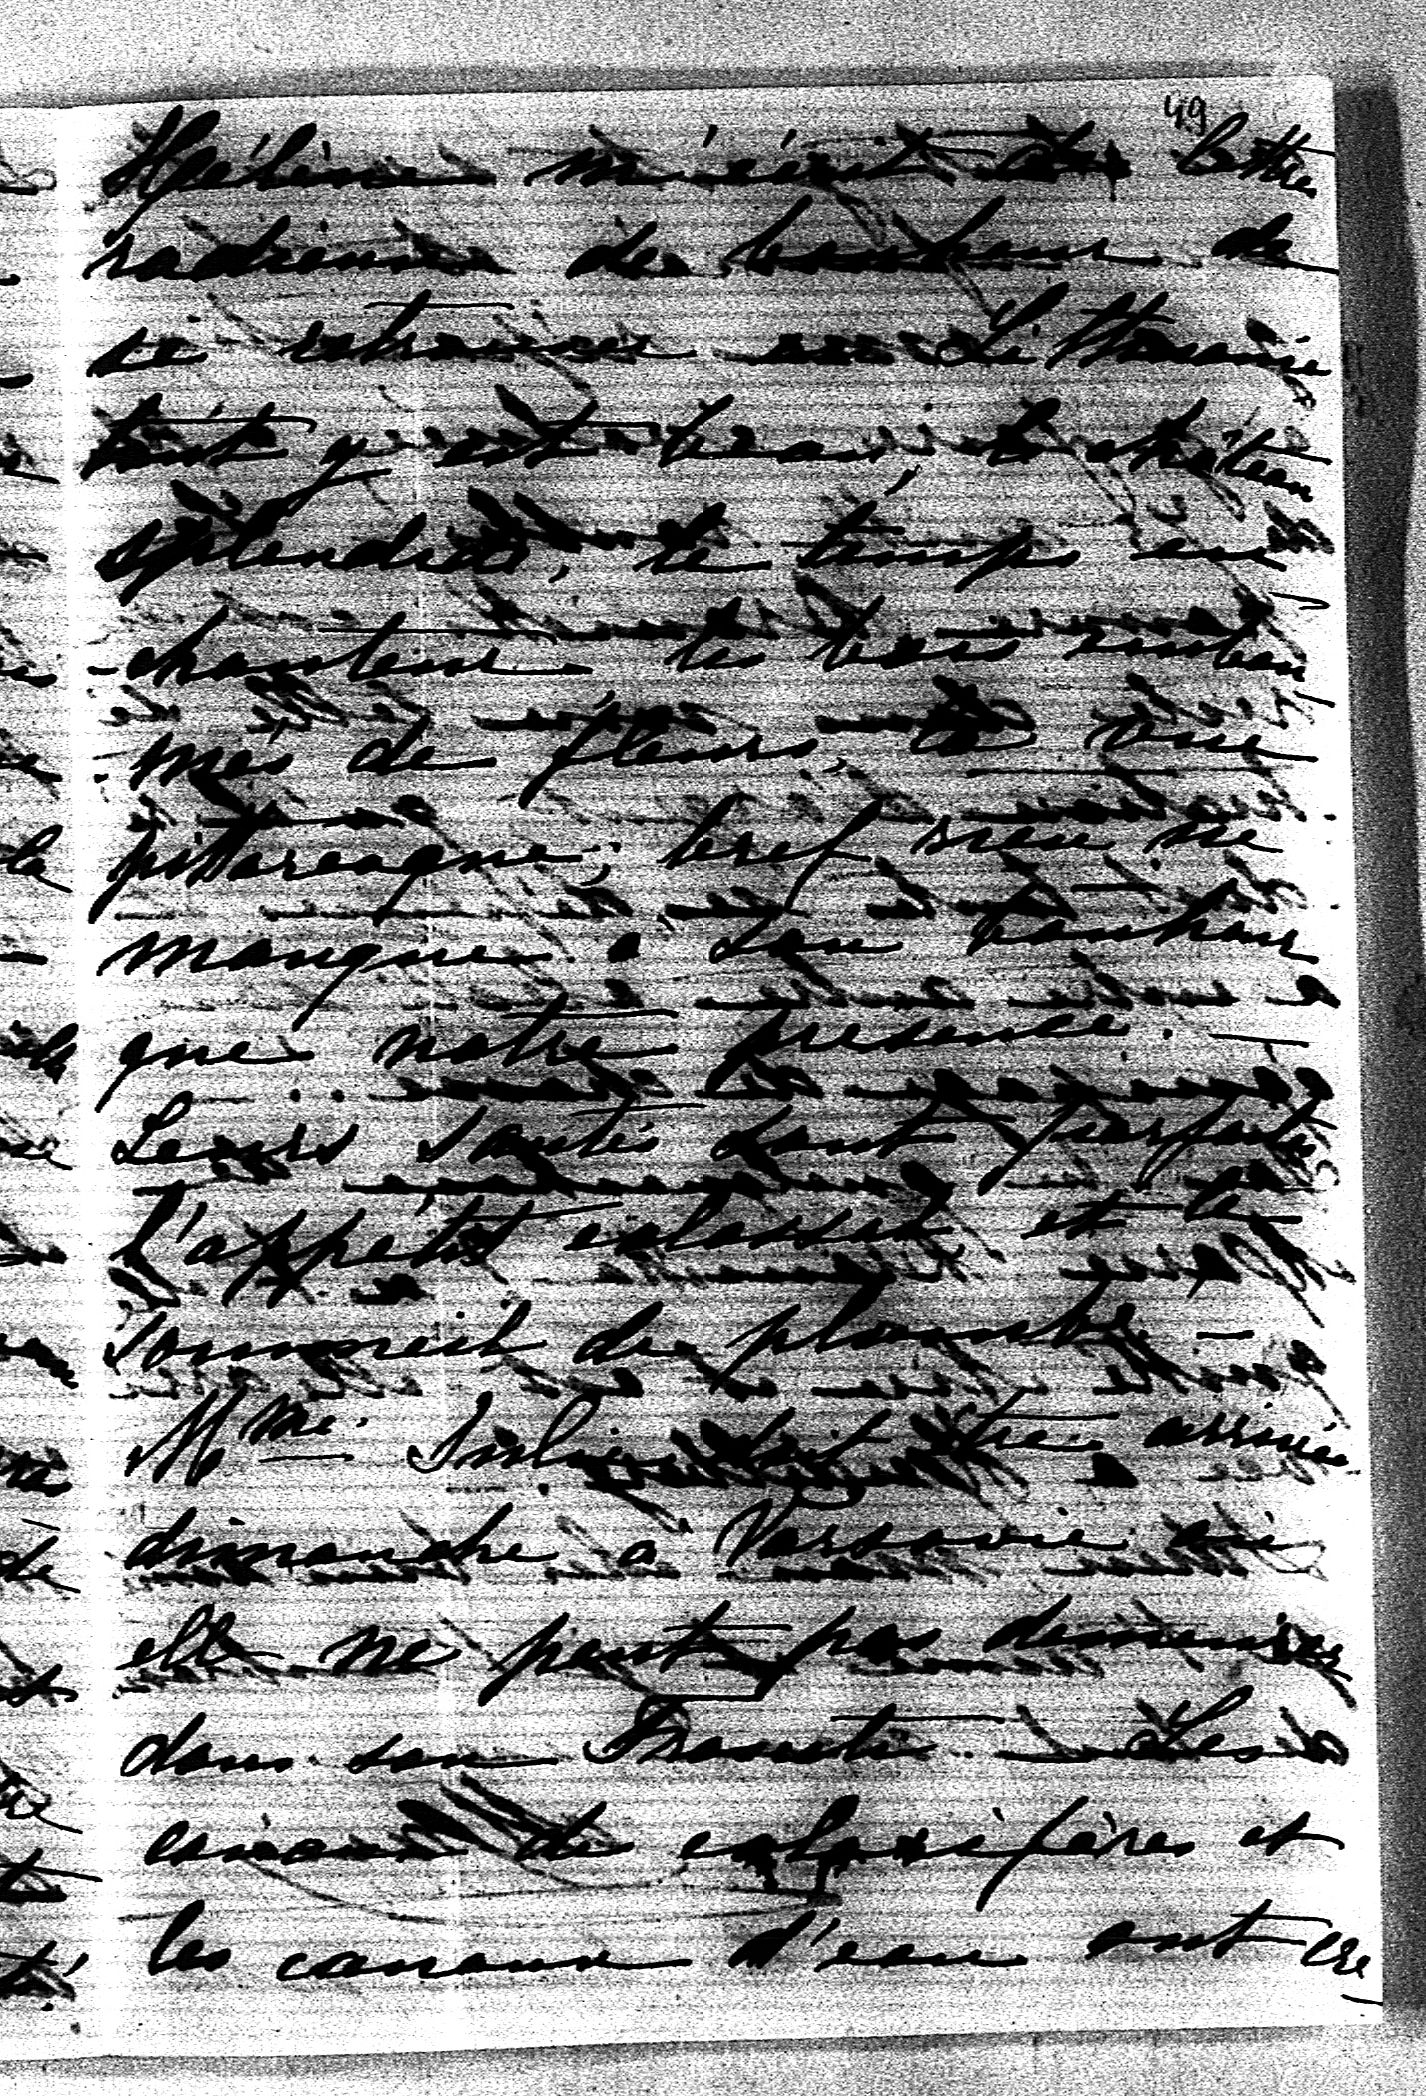 49
Hélène m'écrit des lettres
radieuses de bonheur de
se retrouver en Litthuanie
tout y est beau, le château
splendide, le temps en-
-chanteur les bois embau-
-més de fleurs, la vue
pittoresque; bref rien ne
manque à son bonheur
que notre présence. —
Leurs santés sont parfaites
l'appétit colossal et le
sommeil de plomb. —
Mme. Julie doit être arrivée
dimanche à Varsovie où
elle ne peut pas demeurer
dans son Les
de calorifères et
les canaux d'eau ont cre-